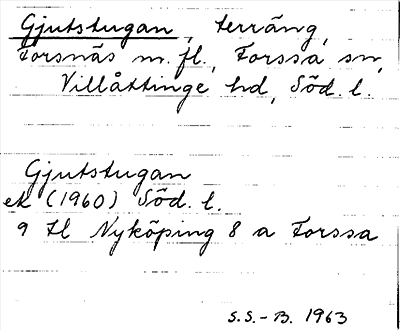 Gjutstugan, terräng,
Forsnäs m. fl., Forssa sn,
Villåttinge hd, Söd. l.
Gjutstugan
ek (1960) Söd. l.
9 H Nyköping 8 a Forssa
S.S.-B. 1963